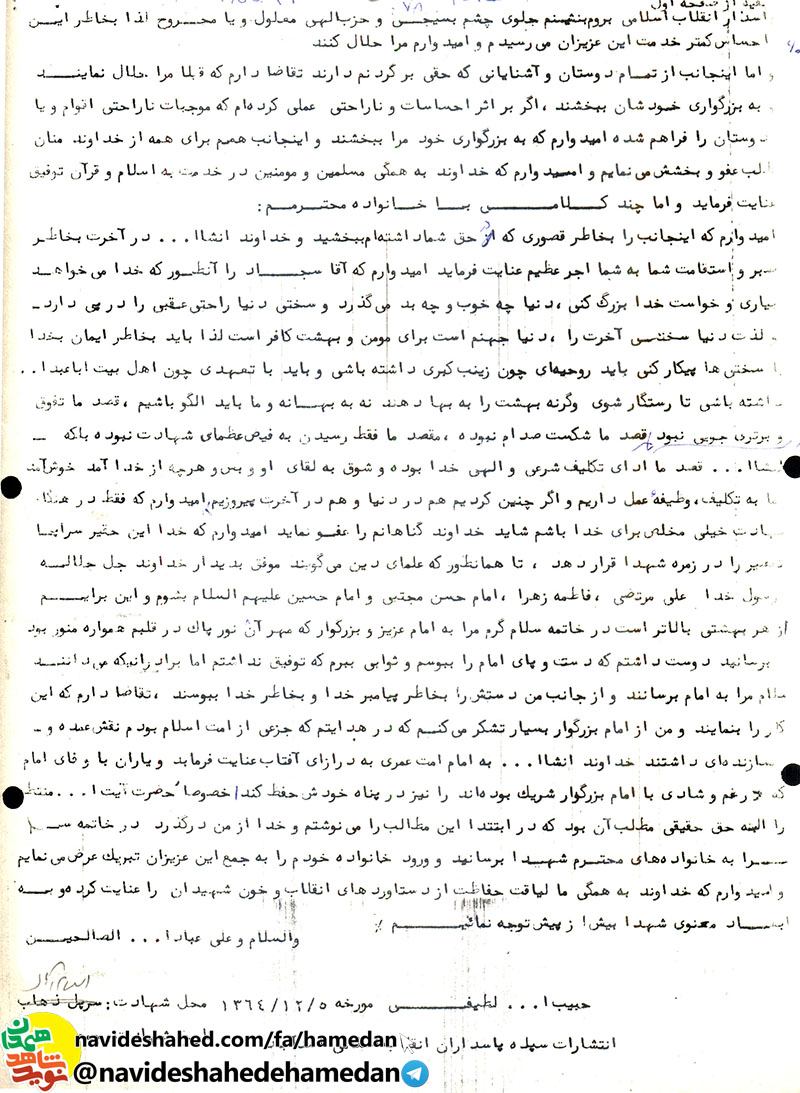 بقیه از صفحه اول
پاسدار انقلاب اسلامی بروم بنشینم جلوی چشم بسیجی و حزب‌الهی معلول و یا مجروح لذا بخاطر این
احساس کمتر خدمت این عزیزان می‌رسیدم و امیدوارم مرا حلال کنند
و اما اینجانب از تمام دوستان و آشنایانی که حقی بر گردنم دارند تقاضا دارم که قبلا مرا حلال نمایند
و به بزرگواری خودشان ببخشند ، اگر بر اثر احساسات و ناراحتی عملی کرده‌ام که موجبات ناراحتی اقوام و یا
دوستان را فراهم شده امیدوارم که به بزرگواری خود مرا ببخشند و اینجانب هم برای همه از خداوند منان
طلب عفو و بخشش می‌نمایم و امیدوارم که خداوند به همگی مسلمین و مومنین در خدمت به اسلام و قرآن توفیق
عنایت فرماید و اما چند کلامی با خانواده محترم :
امیدوارم که اینجانب را بخاطر قصوری که در حق شما داشته‌ام ببخشید و خداوند انشاا... در آخرت بخاطر
صبر و استقامت شما به شما اجر عظیم عنایت فرماید امیدوارم که آقا سجاد را آنطور که خدا می‌خواهد
بیاری و خواست خدا بزرگ کنی ، دنیا چه خوب و چه بد می‌گذرد و سختی دنیا راحتی عقبی را در پی دارد
لذت دنیا سختی آخرت را ، دنیا جهنم است برای مومن و بهشت کافر است لذا باید بخاطر ایمان بخدا
با سختی‌ها پیکار کنی باید روحیه‌ای چون زینب کبری داشته باشی و باید با تعهدی چون اهل بیت اباعبدا...
داشته باشی تا رستگار شوی وگرنه بهشت را به بها دهند نه به بهانه و ما باید الگو باشیم ، قصد ما تفوق
و برتری جویی نبود قصد ما شکست صدام نبوده ، مقصد ما فقط رسیدن به فیض عظمای شهادت نبوده بلکه
انشاا... قصد ما ادای تکلیف شرعی و الهی خدا بوده و شوق به لقای او و بس و هرچه از خدا آمد خوش آمد
ما به تکلیف، وظیفه عمل داریم و اگر چنین کردیم هم در دنیا و هم در آخرت پیروزیم امیدوارم که فقط در هنگام
شهادت خیلی مخلص برای خدا باشم شاید خداوند گناهانم را عفو نماید امیدوارم که خدا این حقیر سراپا
تقصیر را در زمره شهدا قرار دهد ، تا همانطور که علمای دین می‌گویند موفق بدیدار خداوند جل جلاله
رسول خدا علی مرتضی ، فاطمه زهرا ، امام حسن مجتبی و امام حسین علیهم السلام بشوم و این برایم
از هر بهشتی بالاتر است در خاتمه سلام گرم مرا به امام عزیز و بزرگوار که مهر آن نور پاک در قلبم همواره منور بود
برسانید دوست داشتم که دست و پای امام را ببوسم و ثوابی ببرم که توفیق نداشتم اما برادرانیکه می‌دانند
سلام مرا به امام برسانند و از جانب من دستش را بخاطر پیامبر خدا و بخاطر خدا ببوسند ، تقاضا دارم که این
کار را بنمایند و من از امام بزرگوار بسیار تشکر می‌کنم که در هدایتم که جزئی از امت اسلام بودم نقش عمده و
سازنده‌ای داشتند خداوند انشاا... به امام امت عمری به درازای آفتاب عنایت فرماید و یاران با وفای امام
که در غم و شادی با امام بزرگوار شریک بوده‌اند را نیز در پناه خودش حفظ کند خصوصاً حضرت آیت ا... منتظ
را البته حق حقیقی مطلب آن بود که در ابتدا این مطالب را می‌نوشتم و خدا از من درگذرد در خاتمه سلام
مرا به خانواده‌های محترم شهدا برسانید و ورود خانواده خودم را به جمع این عزیزان تبریک عرض می‌نمایم
و امیدوارم که خداوند به همگی ما لیاقت حفاظت از دستاوردهای انقلاب و خون شهیدان را عنایت کرده و به
ابعاد معنوی شهدا بیش از پیش توجه نمائیم ٪
والسلام و علی عبادا... الصالحین
حبیب ا... لطیفی مورخه ۱۳۶۴/۱۲/۵ محل شهادت : سرپل ذهاب
انتشارات سپاه پاسداران انقلاب
navideshahed.com/fa/hamedan
@navideshahedehamedan
نوید شاهد همدان